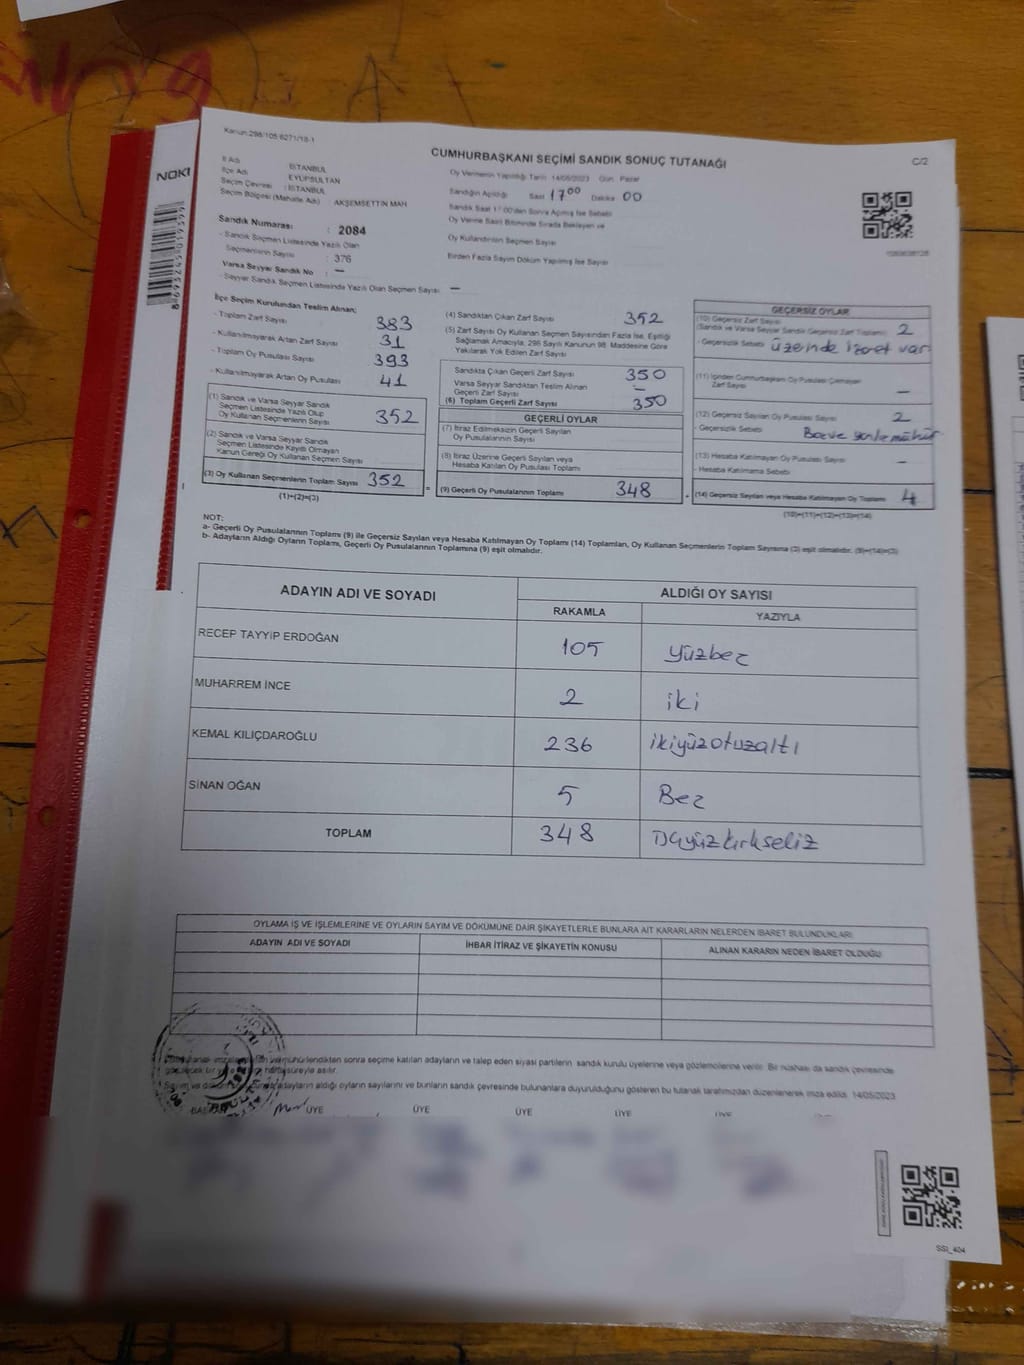 Kanun:298/105 6271/18-1
CUMHURBAŞKANI SEÇİMİ SANDIK SONUÇ TUTANAĞI
C/2
NOKI
8693245019399
İl Adı : İSTANBUL
İlçe Adı : EYÜPSULTAN
Seçim Çevresi : İSTANBUL
Seçim Bölgesi (Mahalle Adı) : AKŞEMSETTİN MAH
Oy Vermenin Yapıldığı Tarih 14/05/2023 Gün Pazar
Sandığın Açıldığı Saat 17 00 Dakika 00
Sandık Saat 17:00'den Sonra Açılmış İse Sebebi
Oy Verme Saati Bitiminde Sırada Bekleyen ve
Oy Kullandırılan Seçmen Sayısı
Birden Fazla Sayım Döküm Yapılmış İse Sayısı
Sandık Numarası : 2084
- Sandık Seçmen Listesinde Yazılı Olan
Seçmenlerin Sayısı : 376
Varsa Seyyar Sandık No : —
- Seyyar Sandık Seçmen Listesinde Yazılı Olan Seçmen Sayısı —
İlçe Seçim Kurulundan Teslim Alınan;
- Toplam Zarf Sayısı 383
- Kullanılmayarak Artan Zarf Sayısı 31
- Toplam Oy Pusulası Sayısı 393
- Kullanılmayarak Artan Oy Pusulası 41
(1) Sandık ve Varsa Seyyar Sandık
Seçmen Listesinde Yazılı Olup
Oy Kullanan Seçmenlerin Sayısı 352
(2) Sandık ve Varsa Seyyar Sandık
Seçmen Listesinde Kayıtlı Olmayan
Kanun Gereği Oy Kullanan Seçmen Sayısı
(3) Oy Kullanan Seçmenlerin Toplam Sayısı 352
(1)+(2)=(3)
(4) Sandıktan Çıkan Zarf Sayısı 352
(5) Zarf Sayısı Oy Kullanan Seçmen Sayısından Fazla İse, Eşitliği
Sağlamak Amacıyla, 298 Sayılı Kanunun 98. Maddesine Göre
Yakılarak Yok Edilen Zarf Sayısı
Sandıkta Çıkan Geçerli Zarf Sayısı 350
Varsa Seyyar Sandıktan Teslim Alınan
Geçerli Zarf Sayısı —
(6) Toplam Geçerli Zarf Sayısı 350
GEÇERLİ OYLAR
(7) İtiraz Edilmeksizin Geçerli Sayılan
Oy Pusulalarının Sayısı
(8) İtiraz Üzerine Geçerli Sayılan veya
Hesaba Katılan Oy Pusulası Toplamı
(9) Geçerli Oy Pusulalarının Toplamı 348
GEÇERSİZ OYLAR
(10) Geçersiz Zarf Sayısı
(Sandık ve Varsa Seyyar Sandık Geçersiz Zarf Toplamı) 2
- Geçersizlik Sebebi üzerinde izaret var
(11) İçinden Cumhurbaşkanı Oy Pusulası Çıkmayan
Zarf Sayısı —
(12) Geçersiz Sayılan Oy Pusulası Sayısı 2
- Geçersizlik Sebebi
(13) Hesaba Katılmayan Oy Pusulası Sayısı —
- Hesaba Katılmama Sebebi
(14) Geçersiz Sayılan veya Hesaba Katılmayan Oy Toplamı 4
(10)+(11)+(12)+(13)=(14)
NOT:
a- Geçerli Oy Pusulalarının Toplamı (9) ile Geçersiz Sayılan veya Hesaba Katılmayan Oy Toplamı (14) Toplamları, Oy Kullanan Seçmenlerin Toplam Sayısına (3) eşit olmalıdır. (9)+(14)=(3)
b- Adayların Aldığı Oyların Toplamı, Geçerli Oy Pusulalarının Toplamına (9) eşit olmalıdır.
ADAYIN ADI VE SOYADI
ALDIĞI OY SAYISI
RAKAMLA YAZIYLA
RECEP TAYYİP ERDOĞAN 105 yüzbez
MUHARREM İNCE 2 iki
KEMAL KILIÇDAROĞLU 236 ikiyüzotuzaltı
SİNAN OĞAN 5 Bez
TOPLAM 348
OYLAMA İŞ VE İŞLEMLERİNE VE OYLARIN SAYIM VE DÖKÜMÜNE DAİR ŞİKAYETLERLE BUNLARA AİT KARARLARIN NELERDEN İBARET BULUNDUKLARI
ADAYIN ADI VE SOYADI İHBAR İTİRAZ VE ŞİKAYETİN KONUSU ALINAN KARARIN NEDEN İBARET OLDUĞU
mühürlendikten sonra seçime katılan adayların ve talep eden siyasi partilerin sandık kurulu üyelerine veya gözlemcilerine verilir. Bir nüshası da sandık çevresinde
süreyle asılır.
adayların aldığı oyların sayılarını ve bunların sandık çevresinde bulunanlara duyurulduğunu gösteren bu tutanak tarafımızdan düzenlenerek imza edildi. 14/05/2023
ÜYE ÜYE ÜYE ÜYE ÜYE
SSI_404